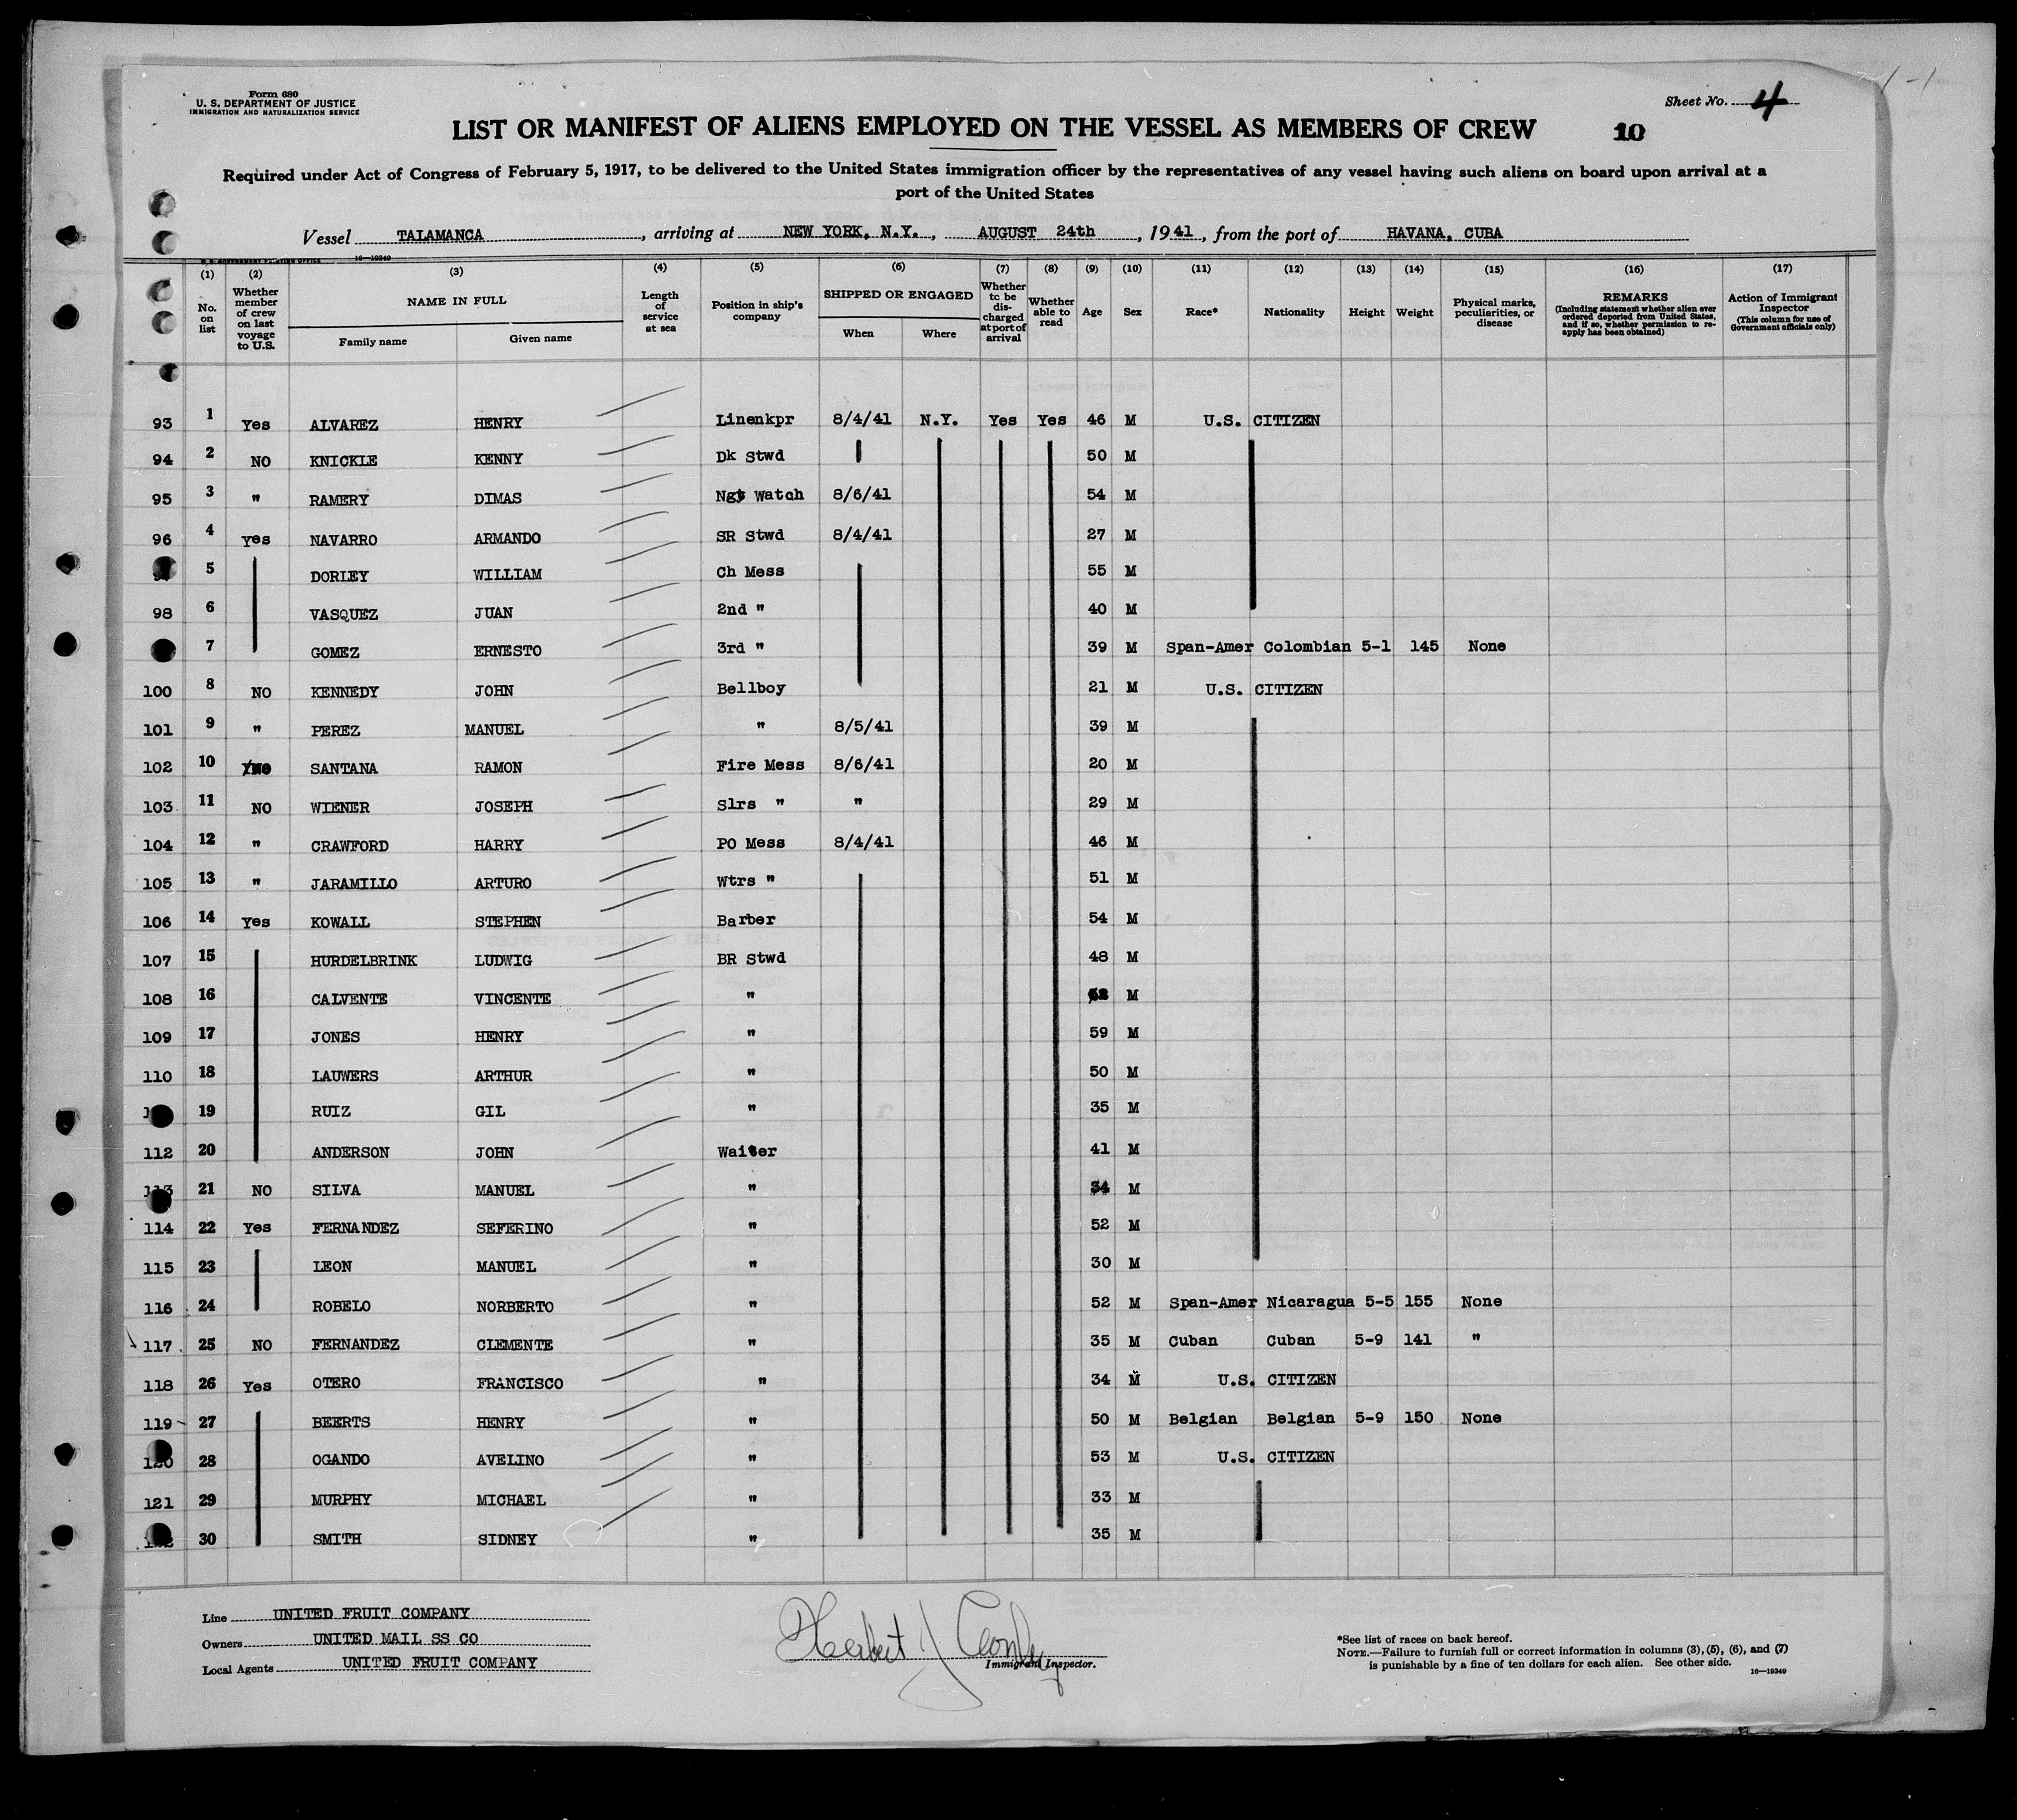 Form 680
U. S. DEPARTMENT OF JUSTICE
IMMIGRATION AND NATURALIZATION SERVICE
Sheet No. 4
LIST OR MANIFEST OF ALIENS EMPLOYED ON THE VESSEL AS MEMBERS OF CREW 10
Required under Act of Congress of February 5, 1917, to be delivered to the United States immigration officer by the representatives of any vessel having such aliens on board upon arrival at a
port of the United States
Vessel TALAMANCA, arriving at NEW YORK, N.Y., AUGUST 24th, 1941, from the port of HAVANA, CUBA
16—19349
(1) (2) (3) (4) (5) (6) (7) (8) (9) (10) (11) (12) (13) (14) (15) (16) (17)
No. on list
Whether member of crew on last voyage to U.S.
NAME IN FULL
Family name Given name
Length of service at sea
Position in ship's company
SHIPPED OR ENGAGED
When Where
Whether to be discharged at port of arrival
Whether able to read
Age
Sex
Race*
Nationality
Height
Weight
Physical marks, peculiarities, or disease
REMARKS
(Including statement whether alien ever ordered deported from United States, and if so, whether permission to re-apply has been obtained)
Action of Immigrant Inspector
(This column for use of Government officials only)
93 1 Yes ALVAREZ HENRY Linenkpr 8/4/41 N.Y. Yes Yes 46 M U.S. CITIZEN
94 2 NO KNICKLE KENNY Dk Stwd 50 M
95 3 " RAMERY DIMAS Ngt Watch 8/6/41 54 M
96 4 Yes NAVARRO ARMANDO SR Stwd 8/4/41 27 M
5 DORLEY WILLIAM Ch Mess 55 M
98 6 VASQUEZ JUAN 2nd " 40 M
7 GOMEZ ERNESTO 3rd " 39 M Span-Amer Colombian 5-1 145 None
100 8 NO KENNEDY JOHN Bellboy 21 M U.S. CITIZEN
101 9 " PEREZ MANUEL " 8/5/41 39 M
102 10 SANTANA RAMON Fire Mess 8/6/41 20 M
103 11 NO WIENER JOSEPH Slrs " " 29 M
104 12 " CRAWFORD HARRY PO Mess 8/4/41 46 M
105 13 " JARAMILLO ARTURO Wtrs " 51 M
106 14 Yes KOWALL STEPHEN Barber 54 M
107 15 HURDELBRINK LUDWIG BR Stwd 48 M
108 16 CALVENTE VINCENTE " M
109 17 JONES HENRY " 59 M
110 18 LAUWERS ARTHUR " 50 M
19 RUIZ GIL " 35 M
112 20 ANDERSON JOHN Waiter 41 M
113 21 NO SILVA MANUEL " 34 M
114 22 Yes FERNANDEZ SEFERINO " 52 M
115 23 LEON MANUEL " 30 M
116 24 ROBELO NORBERTO " 52 M Span-Amer Nicaragua 5-5 155 None
117 25 NO FERNANDEZ CLEMENTE " 35 M Cuban Cuban 5-9 141 "
118 26 Yes OTERO FRANCISCO " 34 M U.S. CITIZEN
119 27 BEERTS HENRY " 50 M Belgian Belgian 5-9 150 None
120 28 OGANDO AVELINO " 53 M U.S. CITIZEN
121 29 MURPHY MICHAEL " 33 M
30 SMITH SIDNEY " 35 M
Line UNITED FRUIT COMPANY
Owners UNITED MAIL SS CO
Local Agents UNITED FRUIT COMPANY
Immigrant Inspector.
*See list of races on back hereof.
NOTE.—Failure to furnish full or correct information in columns (3), (5), (6), and (7)
is punishable by a fine of ten dollars for each alien. See other side.
16—19349